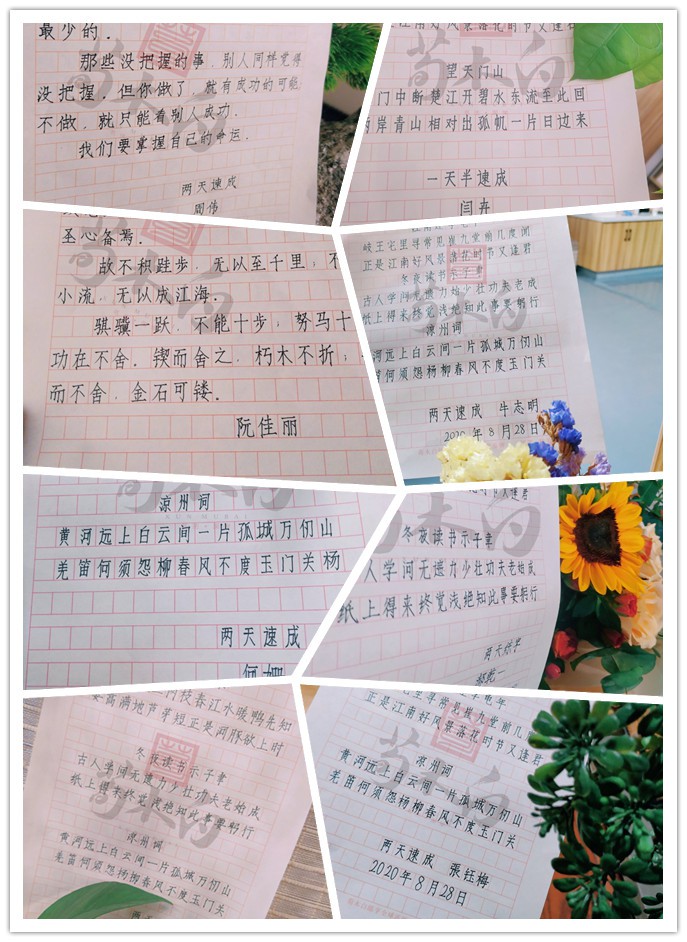 最少的.
那些没把握的事,别人同样觉得
没把握.但你做了,就有成功的可能
不做,就只能看别人成功.
我们要掌握自己的命运.
两天速成
周伟
望天门山
门中断楚江开碧水东流至此回
两岸青山相对出孤帆一片日边来
一天半速成
闫卉
圣心备焉.
故不积跬步,无以至千里;不
小流,无以成江海.
骐骥一跃,不能十步;驽马十
功在不舍.锲而舍之,朽木不折;
而不舍,金石可镂.
阮佳丽
岐王宅里寻常见崔九堂前几度闻
正是江南好风景落花时节又逢君
冬夜读书示子聿
古人学问无遗力少壮功夫老始成
纸上得来终觉浅绝知此事要躬行
凉州词
河远上白云间一片孤城万仞山
笛何须怨杨柳春风不度玉门关
两天速成 牛志明
2020年8月28日
凉州词
黄河远上白云间一片孤城万仞山
羌笛何须怨柳春风不度玉门关杨
两天速成
何姗
冬夜读书示子聿
人学问无遗力少壮功夫老始成
纸上得来终觉浅绝知此事要躬行
枝春江水暖鸭先知
蒌蒿满地芦芽短正是河豚欲上时
冬夜读书示子聿
古人学问无遗力少壮功夫老始成
纸上得来终觉浅绝知此事要躬行
凉州词
黄河远上白云间一片孤城万仞山
羌笛何须怨杨柳春风不度玉门关
宅里寻常见崔九堂前几
正是江南好风景落花时节又逢君
凉州词
黄河远上白云间一片孤城万仞山
羌笛何须怨杨柳春风不度玉门关
两天速成 张钰梅
2020年8月28日